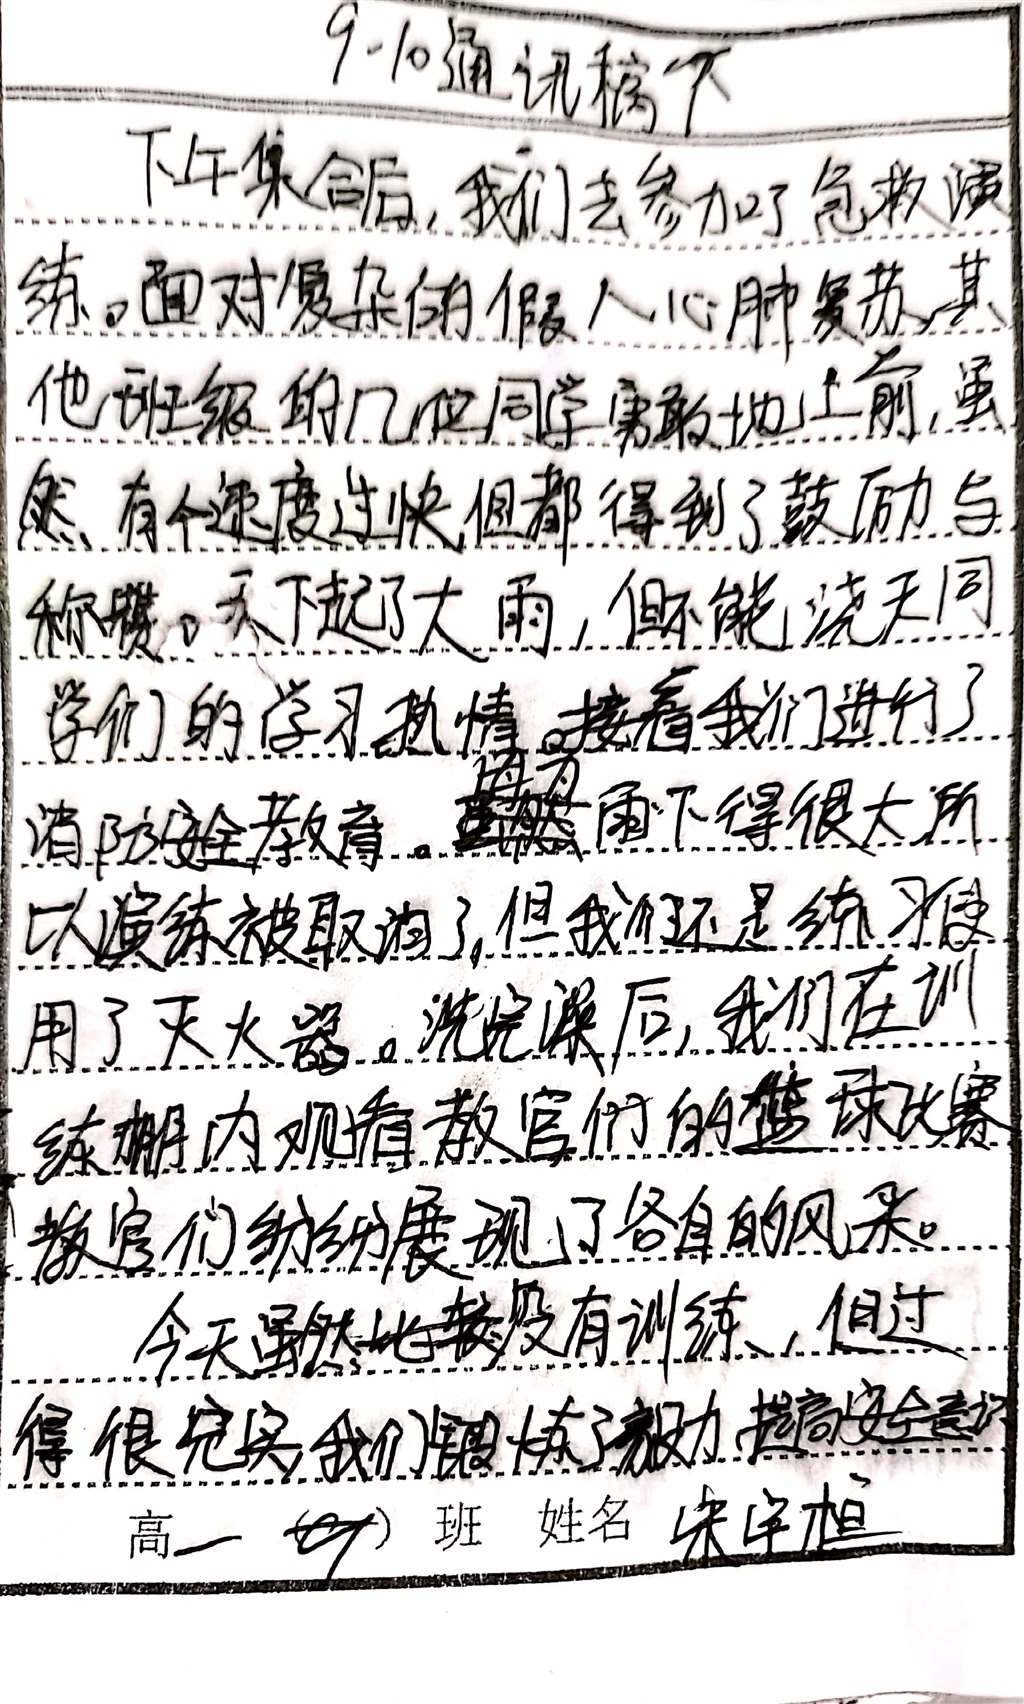 9-10通讯稿下
下午集合后,我们去参加了急救演
练。面对复杂的假人心肺复苏,其
他班级的几位同学勇敢地上前,虽
然有个速度过快,但都得到了鼓励与
称赞。天下起了大雨,但不能浇灭同
学们的学习热情。接着我们进行了
因为
消防安全教育。雨下得很大所
以演练被取消了,但我们还是练习使
用了灭火器。洗完澡后,我们在训
练棚内观看教官们的篮球比赛
教官们纷纷展现了各自的风采。
今天虽然比较没有训练,但过
得很充实,我们锻炼了毅力,提高安全意识
高一()班 姓名 宋宇桓